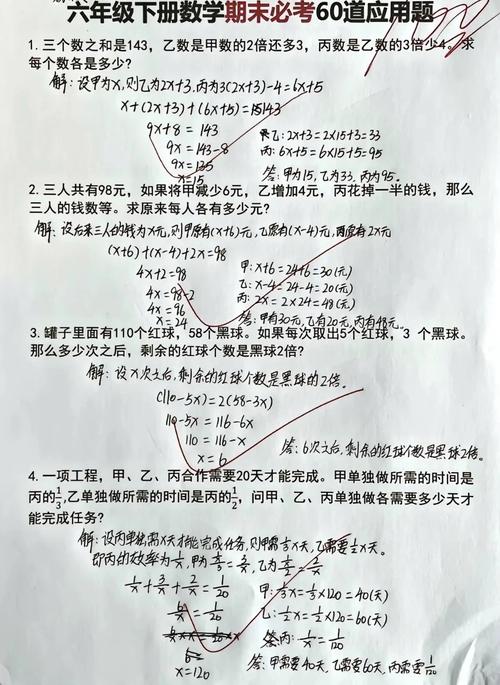 六年级下册数学期末必考60道应用题
1. 三个数之和是143，乙数是甲数的2倍还多3，丙数是乙数的3倍少4。求
每个数各是多少？
解：设甲为x，则乙为2x+3，丙为3(2x+3)-4=6x+5
x+(2x+3)+(6x+5)=143
9x+8=143
9x=143-8
9x=135
x=15
乙：2x+3=2x15+3=33
丙：6x+5=6x15+5=95
答：甲为15，乙为33，丙为95。
2. 三人共有98元，如果将甲减少6元，乙增加4元，丙花掉一半的钱，那么
三人的钱数等。求原来每人各有多少元？
解：设后来三人的钱为x元，则甲原有(x+6)元，乙原有(x-4)元，丙原有2x元
(x+6)+(x-4)+2x=98
4x+2=98
4x=98-2
4x=96
x=24
甲：x+6=24+6=30(元)
乙：x-4=24-4=20(元)
丙：2x=2x24=48(元)
答：甲有30元，乙有20元，丙有48元。
3. 罐子里面有110个红球，58个黑球。如果每次取出5个红球，3 个黑球。
那么多少次之后，剩余的红球个数是黑球2倍？
解：设x次之后，剩余的红球个数是黑球的2倍。
(110-5x)=2(58-3x)
110-5x=116-6x
110=116-x
x=6
答：6次之后，剩余的红球个数是黑球2倍。
4. 一项工程，甲、乙、丙合作需要20天才能完成。甲单独做所需的时间是
丙的1/3,乙单独做所需的时间是丙的1/2，问甲、乙、丙单独做各需要多少天才
能完成任务？
解：设丙单独需x天才能完成任务，则甲需1/3x天，乙需要1/2x天。
即丙的效率为1/x，甲为3/x，乙为2/x
1/x+3/x+2/x=1/20
6/x=1/20
x=120
甲：1/3x=1/3x120=40(天)
乙：1/2x=1/2x120=60(天)
丙：1/x=1/120
答：甲需要40天，乙需要60天，丙需要1/120